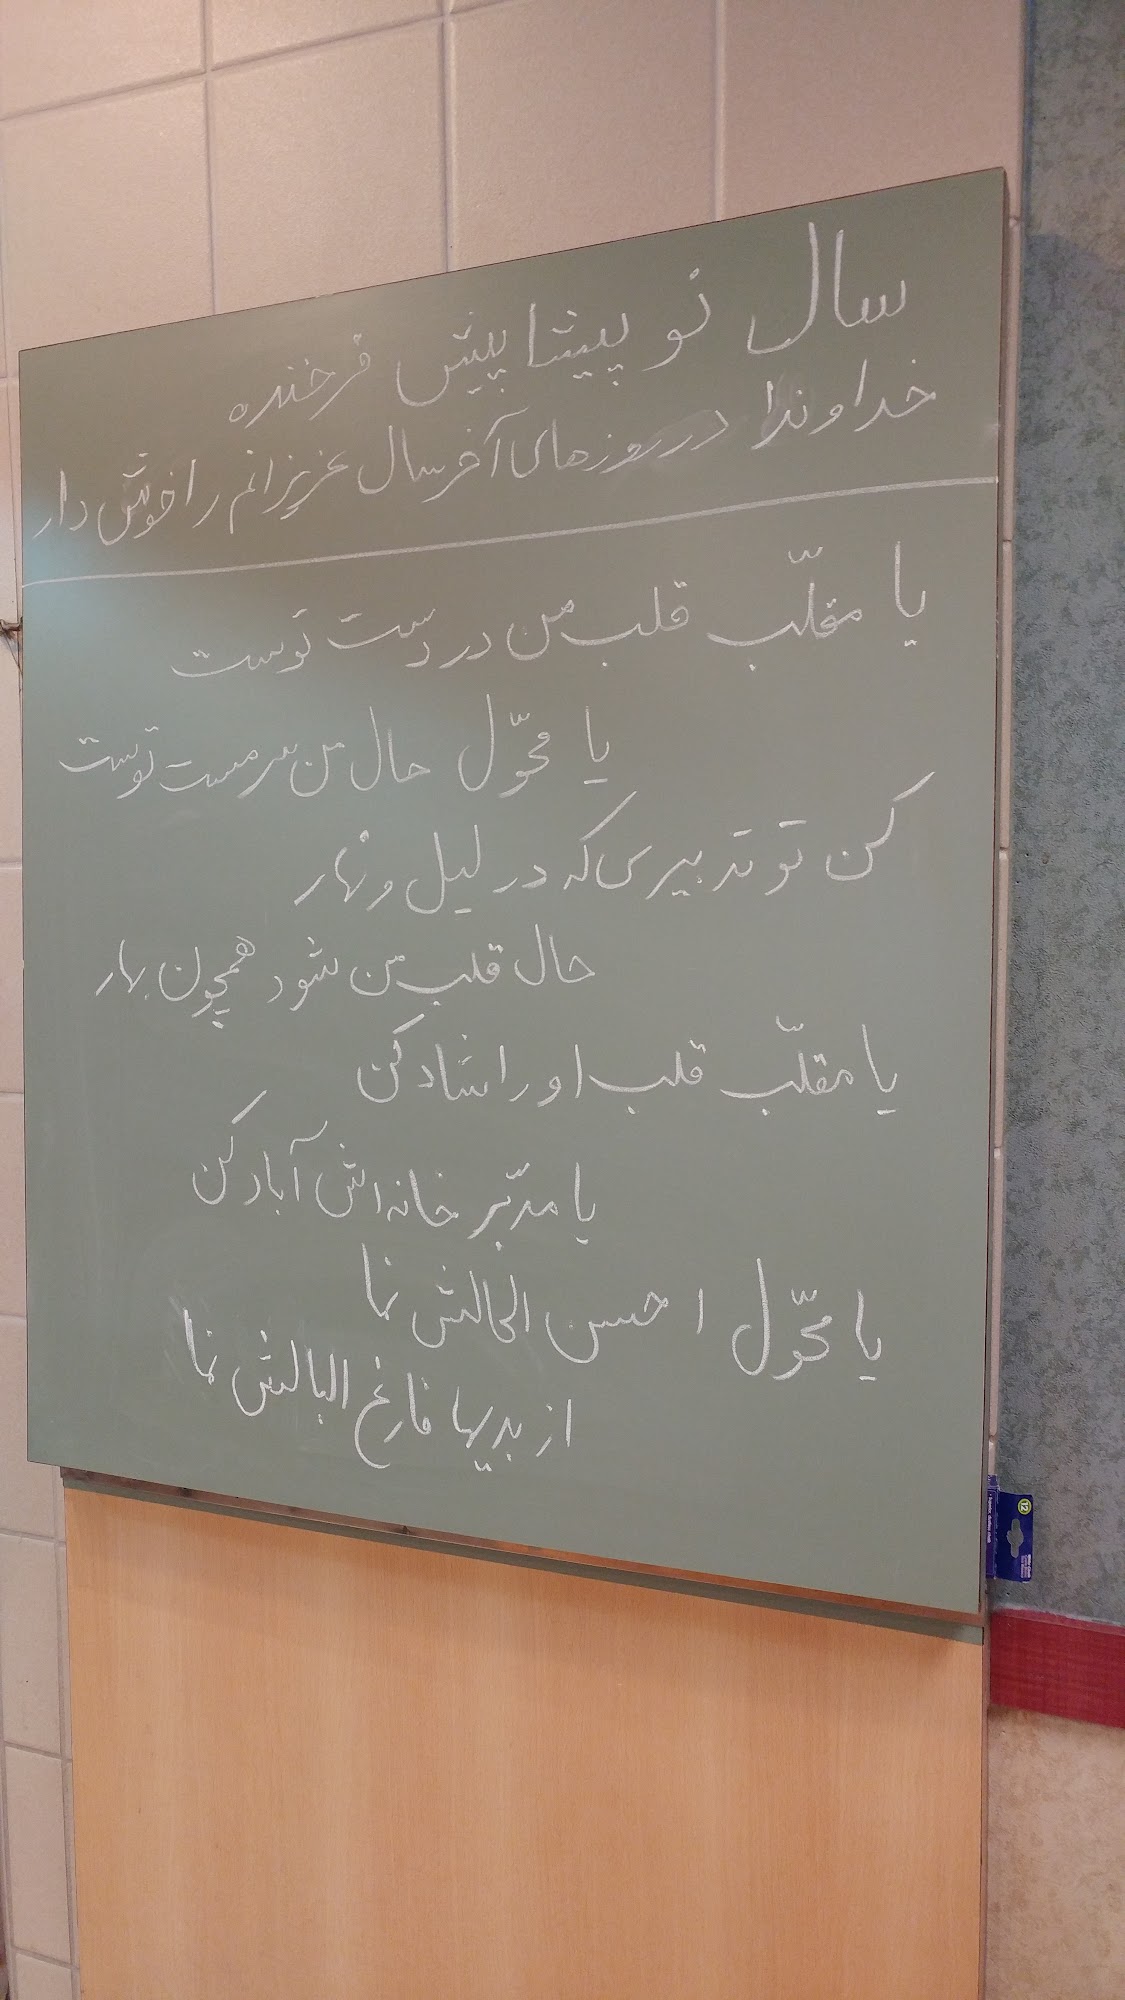 سال نو پیشاپیش فرخنده
خداوندا در روزهای آخر سال عزیزانم را خوش دار
یا مقلّب قلب من در دست توست
یا محوّل حال من سرمست توست
کن تو تدبیری که در لیل و نهار
حال قلب من شود همچون بهار
یا مقلّب قلب او را شاد کن
یا مدبّر خانه اش آباد کن
یا محوّل احسن الحالش نما
از بدیها فارغ البالش نما
12